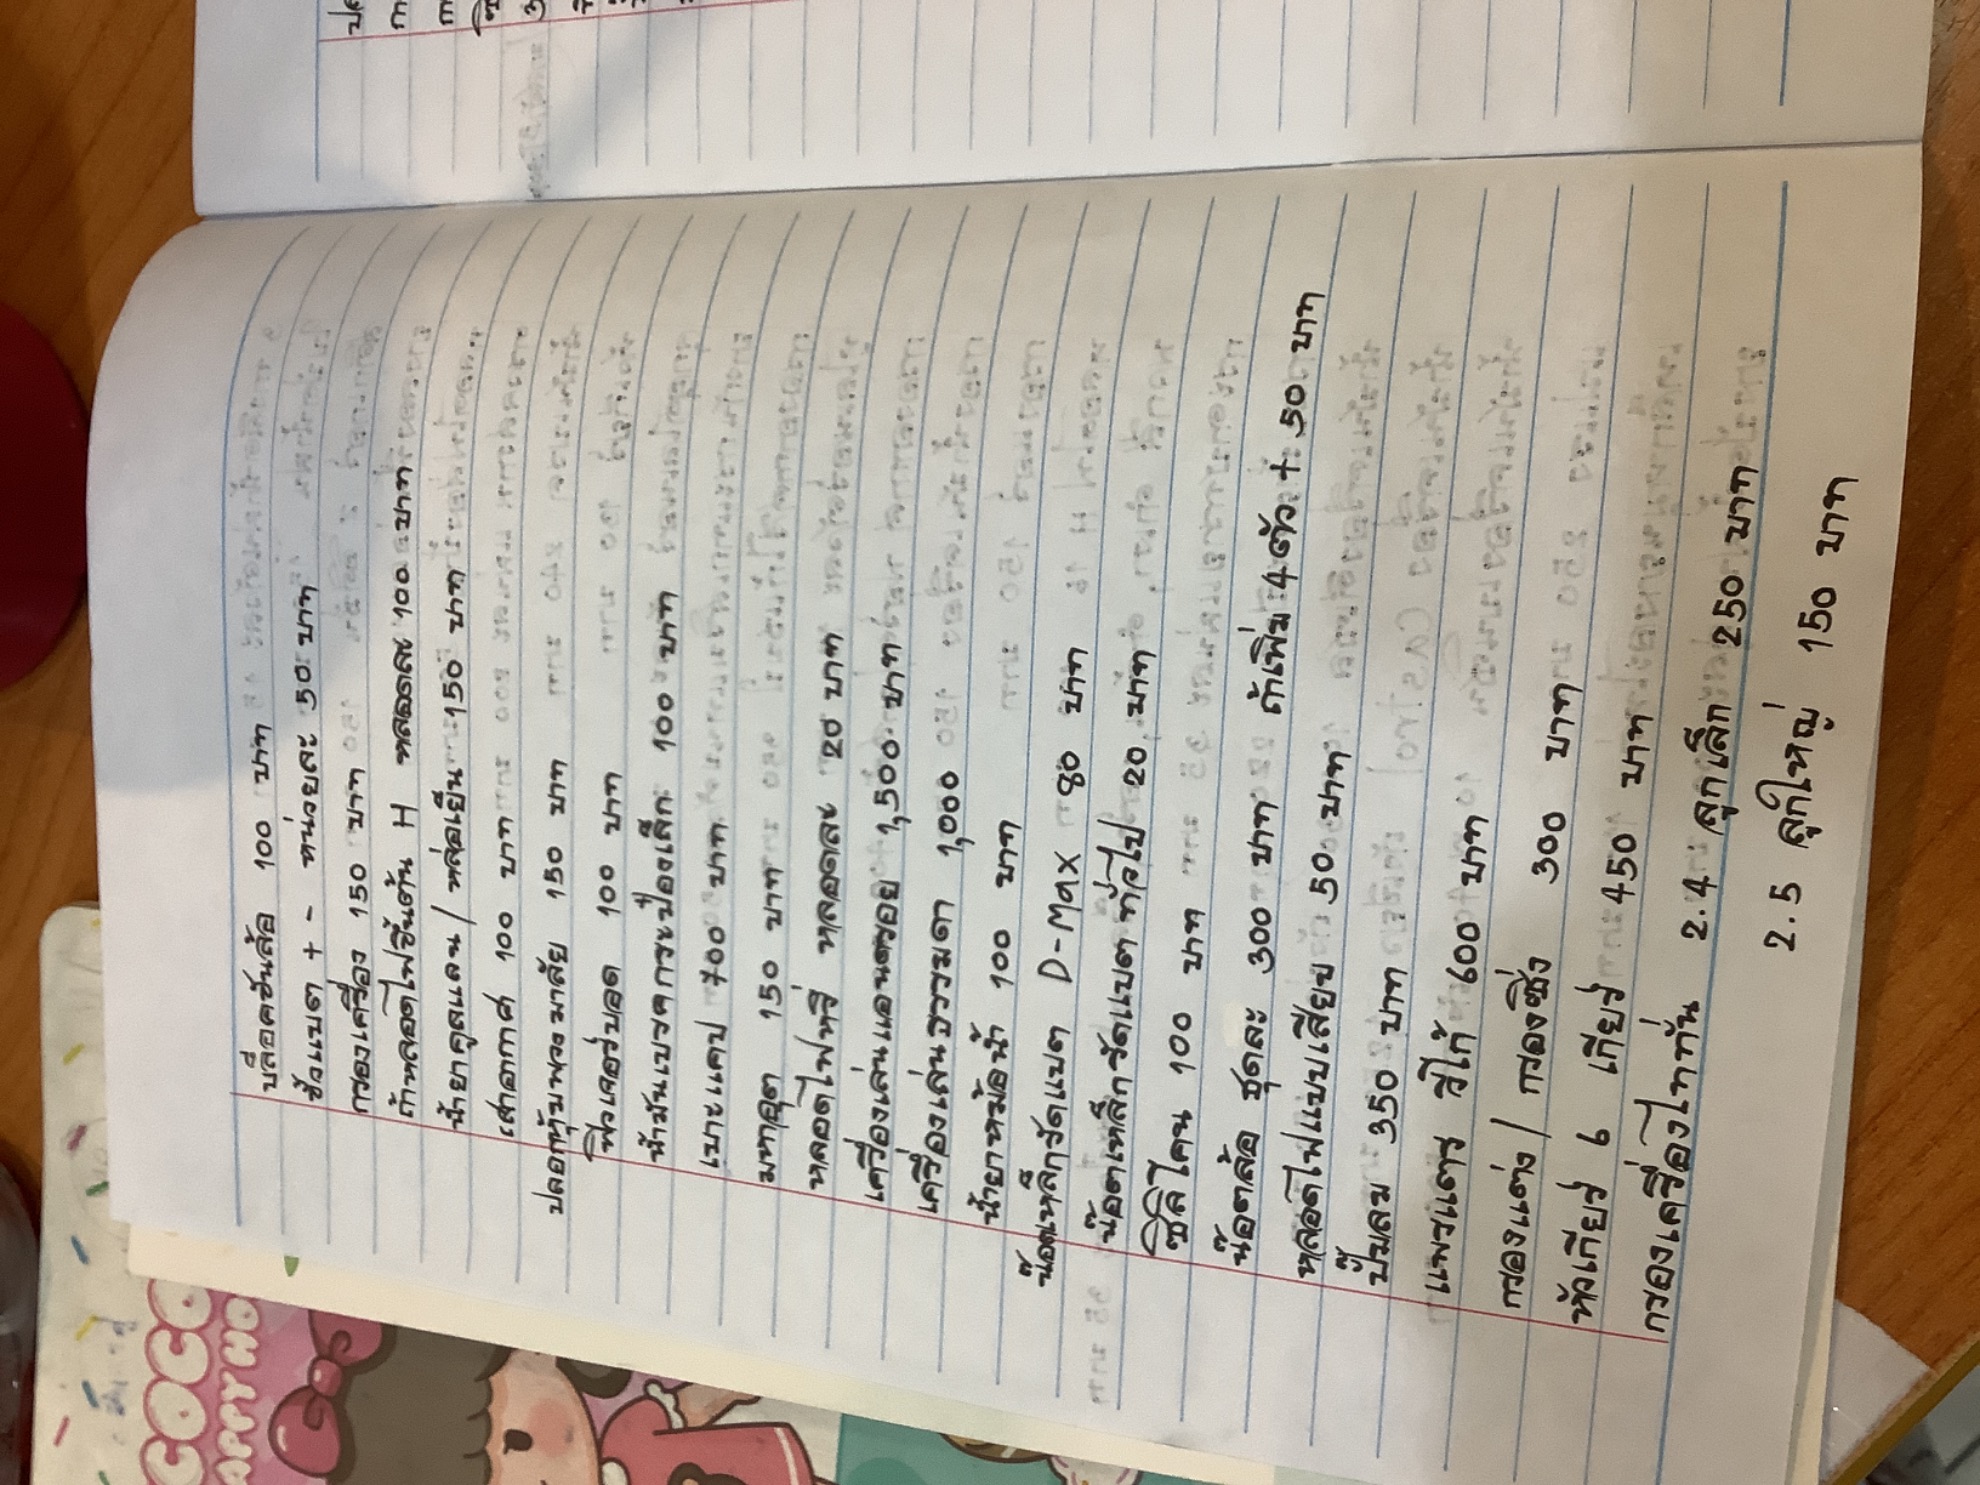 บล็อคขันล้อ 100 บาท
ขั้วแบต + - หน่วยละ 50 บาท
กรองเครื่อง 150 บาท
ถ้าหลอดไฟขึ้นต้น H หลอดละ 100 บาท
น้ำยาคูลแลน / หล่อเย็น 150 บาท
เสาอากาศ 100 บาท
ปลอกหุ้มพวงมาลัย 150 บาท
หัวเจอร์บอด 100 บาท
น้ำมันเบรคกระป๋องเล็ก 100 บาท
เบาะแคป 700 บาท
มหาอุด 150 บาท
หลอดไฟหรี่ หลอดละ 20 บาท
เครื่องเล่นแอนดรอย 1,500 บาท
เครื่องเล่นธรรมดา 1,000
น้ำยาหม้อน้ำ 100 บาท
น๊อตเหล็กรัดแบต D-Max 80 บาท
น๊อตเหล็กรัดแบต ทั่วไป 20 บาท
ซิลิโคน 100 บาท
น๊อตล้อ ชุดละ 300 บาท ถ้าเพิ่ม 4 ตัว + 50 บาท
หลอดไฟแบบเสียบ 50 บาท
ปั๊มลม 350 บาท
แพรแตร รีโก้ 600 บาท
กรองแต่ง / กรองซิ่ง 300 บาท
หัวเกียร์ 6 เกียร์ 450 บาท
กรองเครื่องไททัน 2.4 ลูกเล็ก 250 บาท
2.5 ลูกใหญ่ 150 บาท
COCO
APPY HO